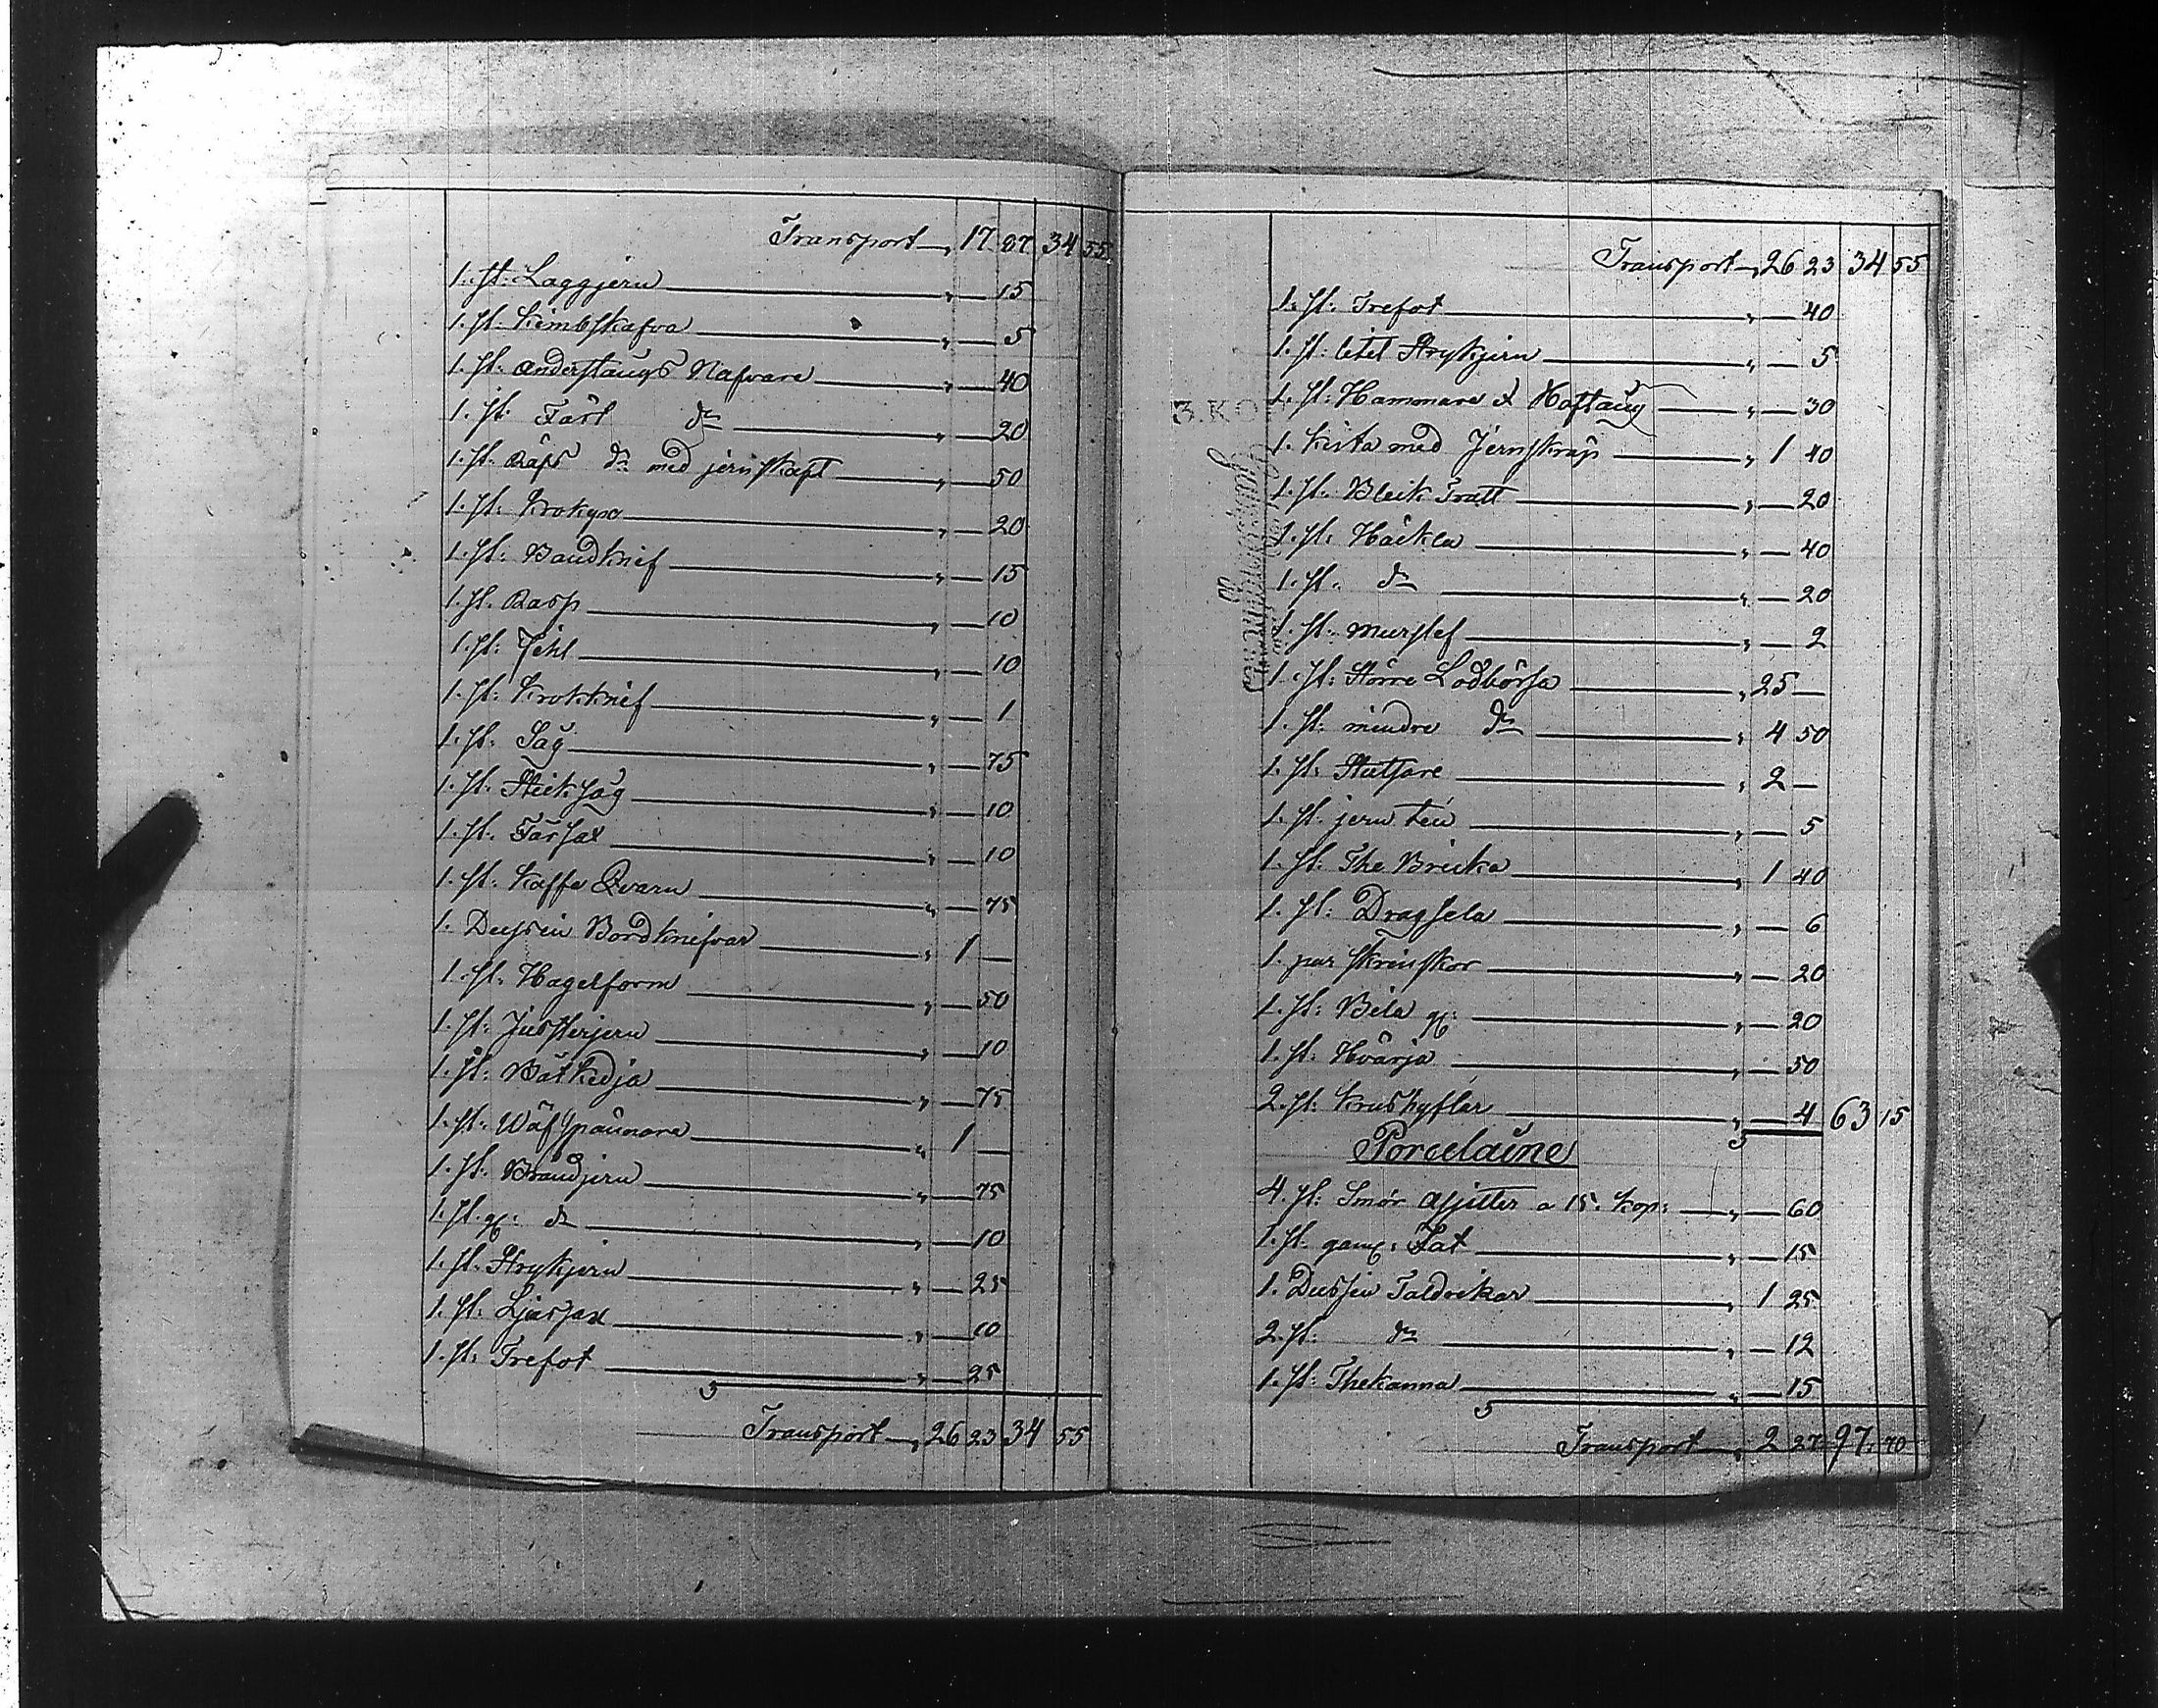 Transport „ 17 87 34 55
1. st: Laggjern „ — 15
1. st: Kimbskafva „ — 5
1. st: Anderstangs Nafvare „ — 40
1. st: Tärl d:o „ — 20
1. st. Raps d:o med jernskaft „ — 50
1. st: Krokyxa „ — 20
1. st: Bandknif „ — 15
1. st. Rasp „ — 10
1. st: Fihl „ — 10
1. st: Krokknif „ — 1
1. st. Såg „ — 75
1. st. Stick Såg „ — 10
1. st. Fårsax „ — 10
1. st. Kaffe Qvarn „ — 75
1. Dussin Bordknifvar „ 1 —
1. st: Hagelform „ — 50
1. st: Justerjern „ — 10
1. st: Båtkedja „ — 75
1. st: Wäfspännare „ 1 —
1. st. Brandjern „ — 75
1. st. gl: d:o „ — 10
1. st. Strykjern „ — 25
1. st: Ljussax „ — 10
1. st: Trefot „ — 25
Transport „ 26 23 34 55
Transport „ 26 23 34 55
1. st: Trefot „ — 40
1. st: litet Strykjern „ — 5
1. st: Hammare & Hoftång „ — 30
1. Kista med Jernskrap „ 1 40
1. st. Bleck Tratt „ — 20
1. st: Häckla „ — 40
1. st. d:o „ — 20
1. st: Murslef „ — 2
1. st: Större Lodbössa „ 25 —
1. st: mindre d:o „ 4 50
1. st: Stutsare „ 2 —
1. st: jern ten „ — 5
1. st: The Bricka „ 1 40
1. st: Dragsela „ — 6
1. par Skrinskor „ — 20
1. st: Bila gl: „ — 20
1. st: Hvärja „ — 50
2. st: Krushyflar „ — 4 63 15
Porcelaine
4. st: Smör Assjetter a 15. kop: „ — 60
1. st. gaml: Fat „ — 15
1. Dussin Taldrikar „ 1 25
2. st: d:o „ — 12
1. st: Thekanna „ — 15
Transport „ 2 27 97. 70
3. KO